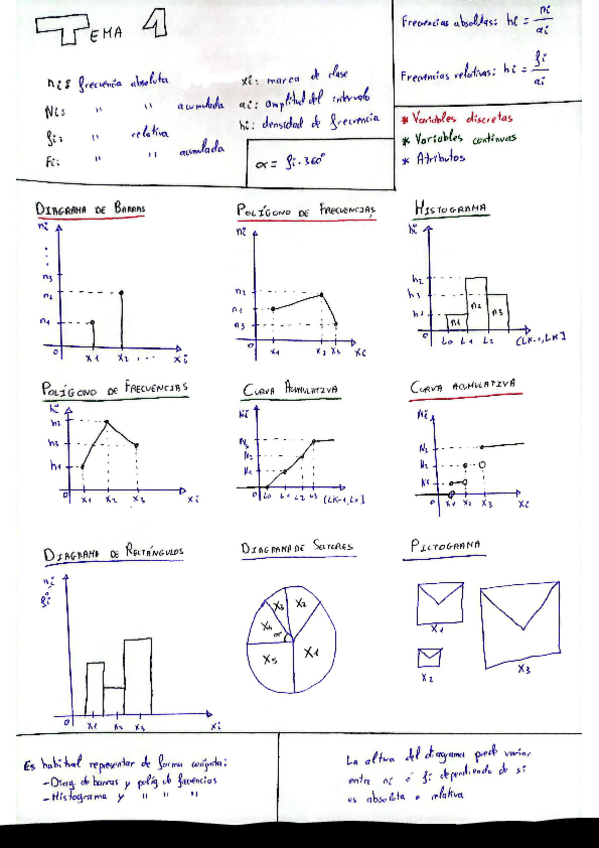 TEMA 1
ni: frecuencia absoluta
Ni: " " acumulada
fi: " relativa
Fi: " " acumulada
xi: marca de clase
ai: amplitud del intervalo
hi: densidad de frecuencia
α = fi·360°
Frecuencias absolutas: hi = ni/ai
Frecuencias relativas: hi = fi/ai
* Variables discretas
* Variables continuas
* Atributos
DIAGRAMA DE BARRAS
ni
n3
n2
n1
0 x1 x2 .... xi
POLÍGONO DE FRECUENCIAS
ni
n2
n1
n3
0 x1 x2 x3 xi
HISTOGRAMA
hi
h2
h3
h1
n1 n2 n3
0 L0 L1 L2 (LK-1, LK]
POLÍGONO DE FRECUENCIAS
hi
h2
h3
h1
0 x1 x2 x3 xi
CURVA ACUMULATIVA
Ni
N3
N2
N1
0 L0 L1 L2 L3 (LK-1, LK]
CURVA ACUMULATIVA
Ni
N3
N2
N1
0 x1 x2 x3 xi
DIAGRAMA DE RECTÁNGULOS
ni
fi
0 x1 x2 x3 xi
DIAGRAMA DE SECTORES
x3 x2
x4 α
x5 x1
PICTOGRAMA
x1
x2
x3
Es habitual representar de forma conjunta:
- Diag. de barras y políg. de frecuencias
- Histograma y " " "
La altura del diagrama puede variar
entre ni ó fi dependiendo de si
es absoluta o relativa